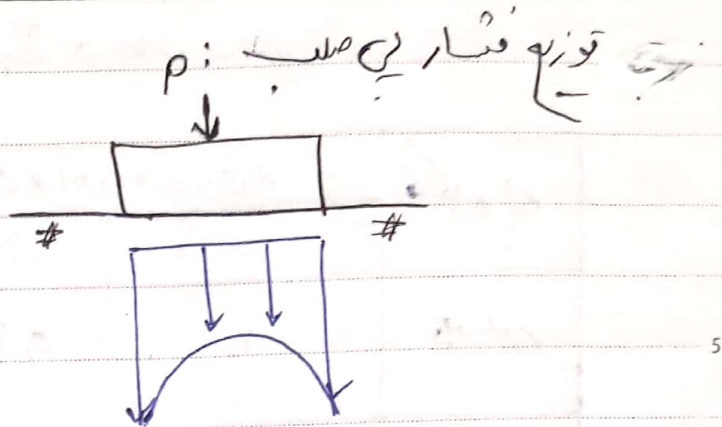 توزیع فشار پی صلب :
P
#
#
5